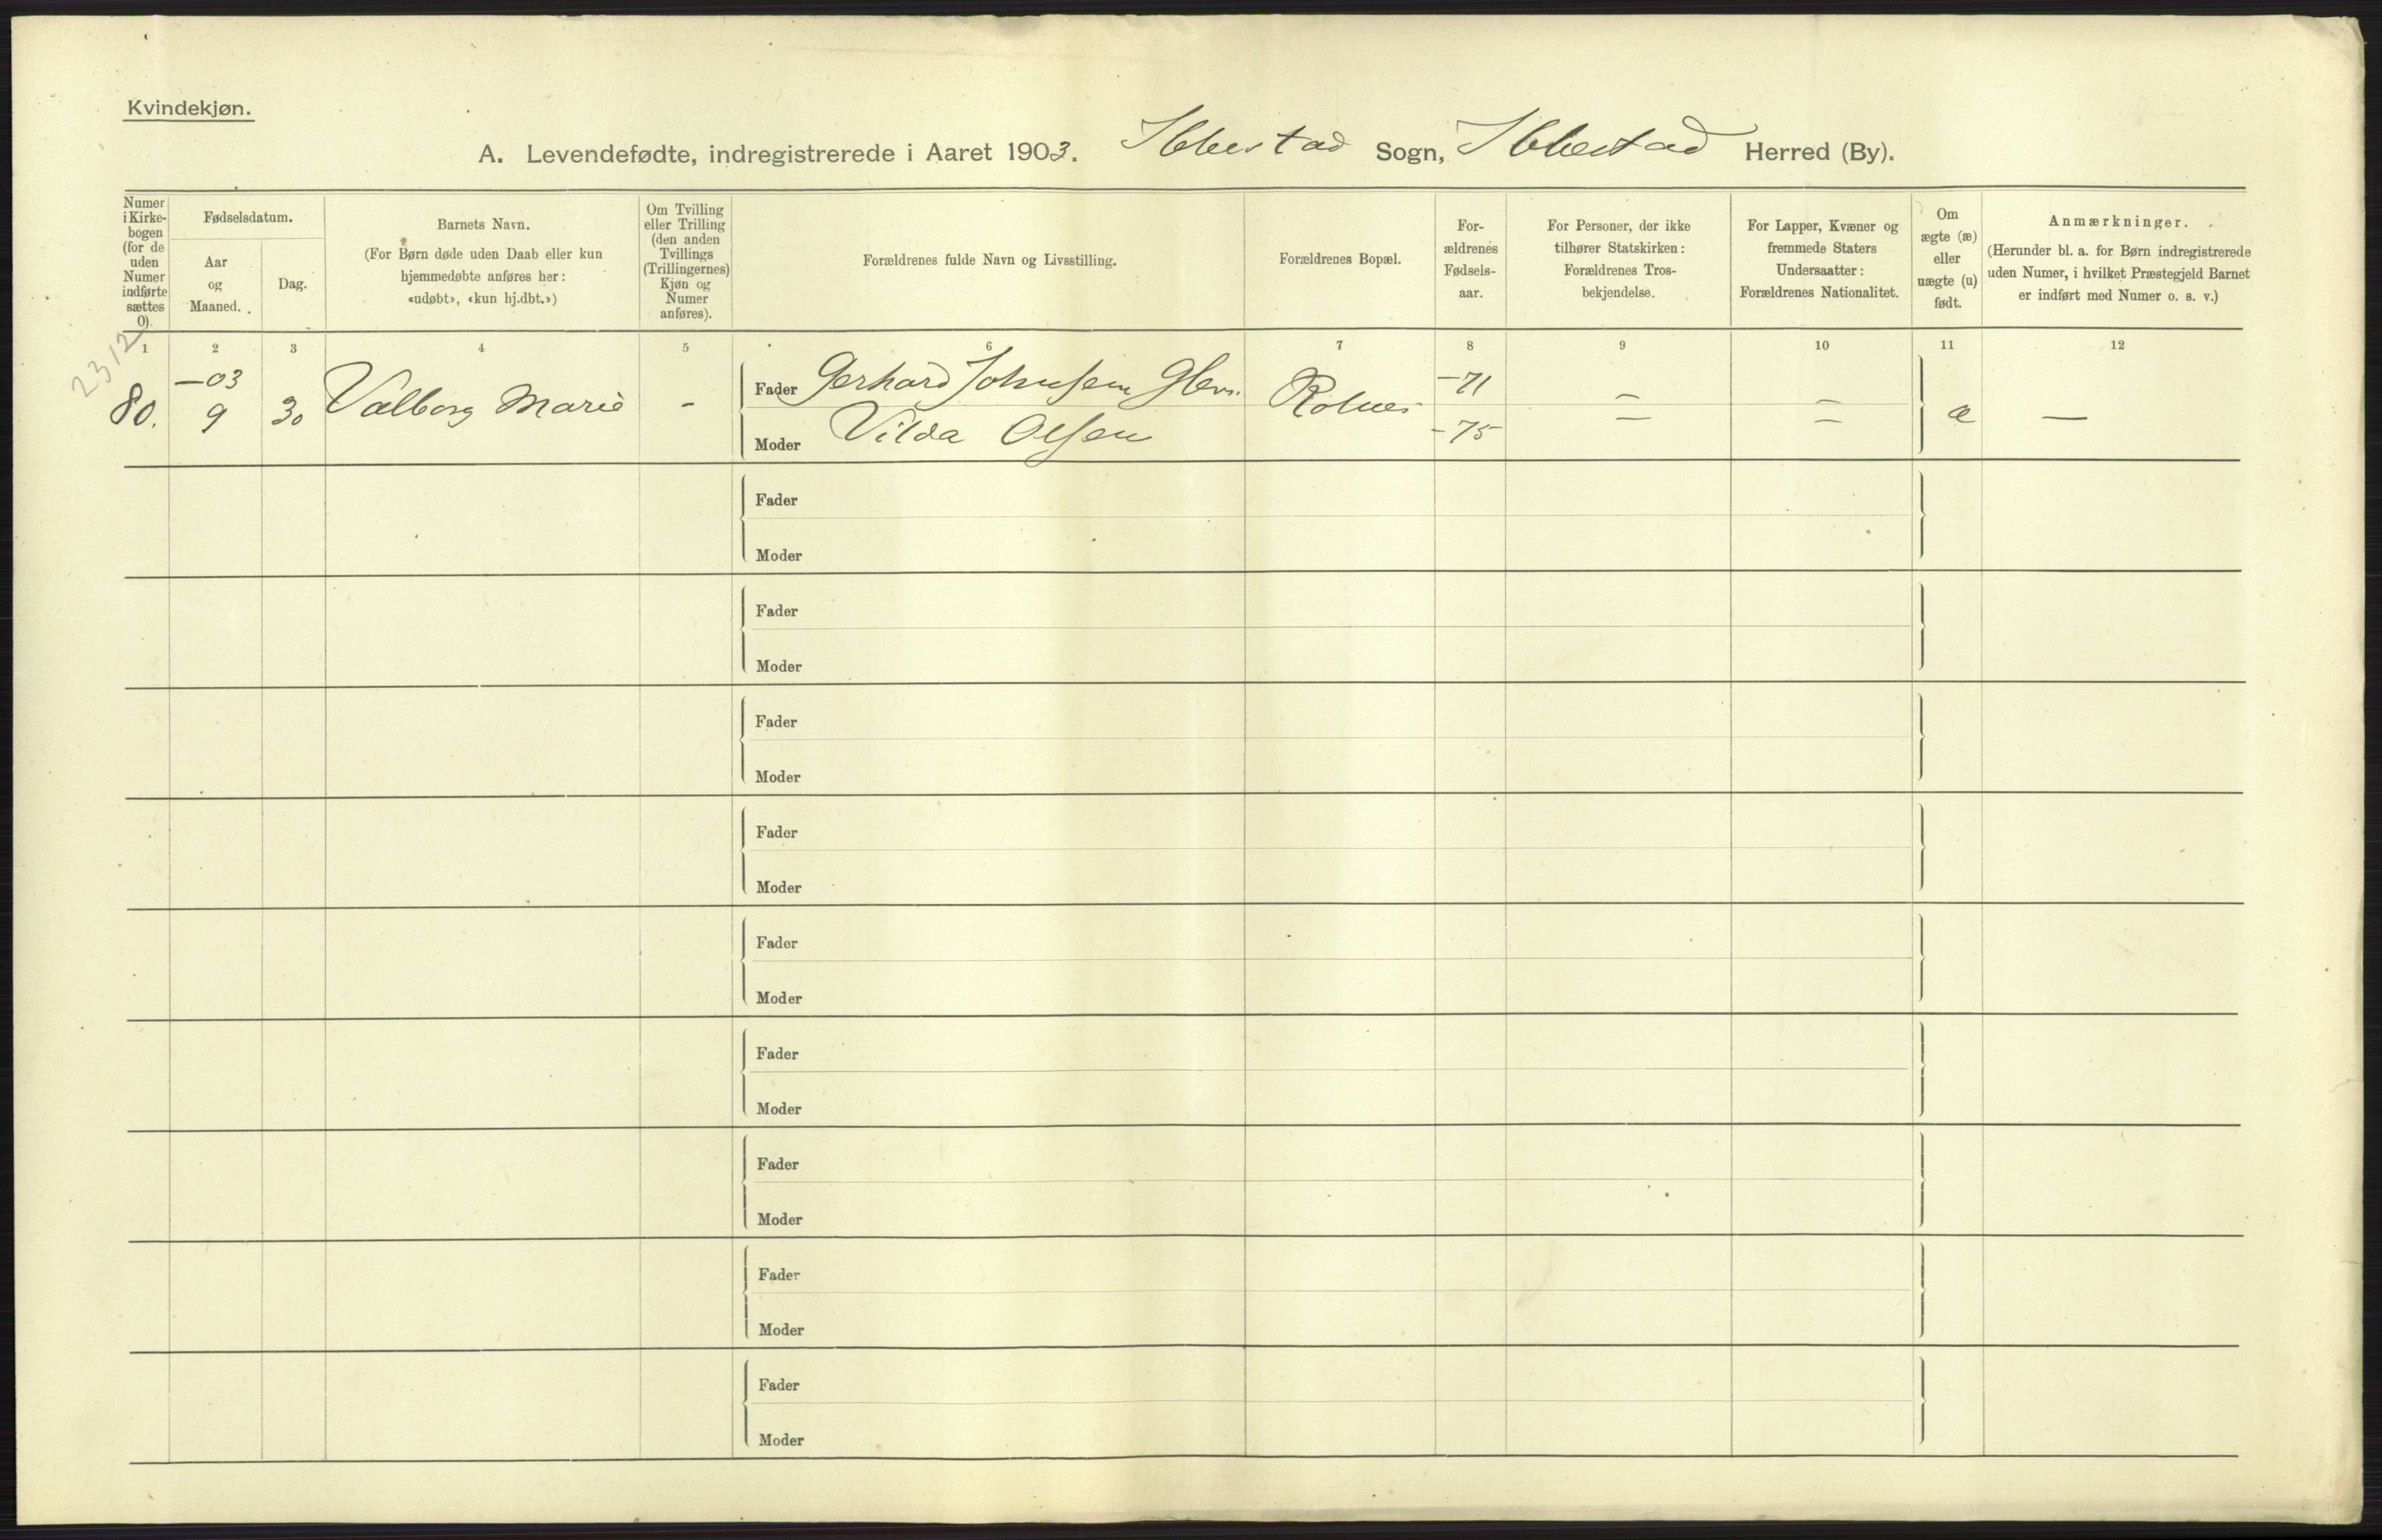 Kvindekjøn.
A. Levendefødte, indregistrerede i Aaret 1903. Ibbestad Sogn, Ibbestad Herred (By).
Numer
i Kirke-
bogen
(for de
uden
Numer
indførte
sættes
0).
Fødselsdatum.
Aar
og
Maaned.
Dag.
Barnets Navn.
(For Børn døde uden Daab eller kun
hjemmedøbte anføres her:
«udøbt», «kun hj.dbt.»)
Om Tvilling
eller Trilling
(den anden
Tvillings
(Trillingernes)
Kjøn og
Numer
anføres).
Forældrenes fulde Navn og Livsstilling.
Forældrenes Bopæl.
For-
ældrenes
Fødsels-
aar.
For Personer, der ikke
tilhører Statskirken:
Forældrenes Tros-
bekjendelse.
For Lapper, Kvæner og
fremmede Staters
Undersaatter:
Forældrenes Nationalitet.
Om
ægte (æ)
eller
uægte (u)
født.
Anmærkninger.
(Herunder bl. a. for Børn indregistrerede
uden Numer, i hvilket Præstegjeld Barnet
er indført med Numer o. s. v.)
1 2 3 4 5 6 7 8 9 10 11 12
2312
80. —03 9 30 Valborg Marie - Fader Gerhard Johnsen Rolnes -71 — — æ —
Moder Vilda Olsen -75 — —
Fader
Moder
Fader
Moder
Fader
Moder
Fader
Moder
Fader
Moder
Fader
Moder
Fader
Moder
Fader
Moder
Fader
Moder